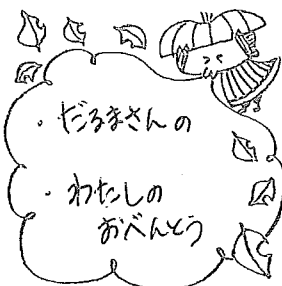 ・だるまさんの
・わたしの
おべんとう